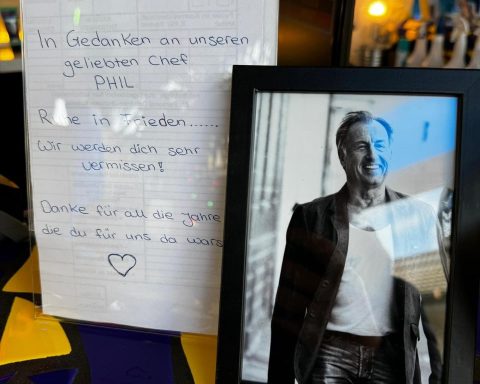 In Gedanken an unseren
geliebten Chef
PHIL
Ruhe in Frieden......
Wir werden dich sehr
vermissen!
Danke für all die Jahre
die du für uns da warst